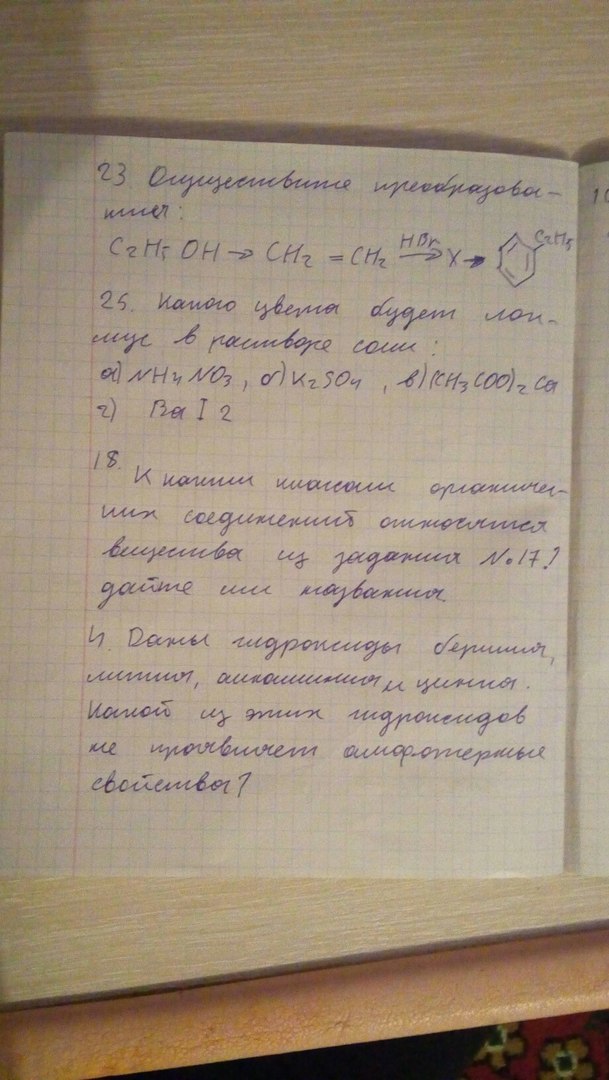 23 Осуществите преобразова-
ния:
C2H5OH → CH2 = CH2 HBr→ X → C2H5
25. Какого цвета будет лак-
мус в растворе соли:
а) NH4NO3, б) K2SO4, в) (CH3COO)2 Ca
г) Ba I 2
18. К каким классам органичес-
ких соединений относятся
вещества из задания №17?
дайте им названия.
4. Даны гидроксиды бериллия,
лития, алюминия и цинка.
Какой из этих гидроксидов
не проявляет амфотерные
свойства?
1